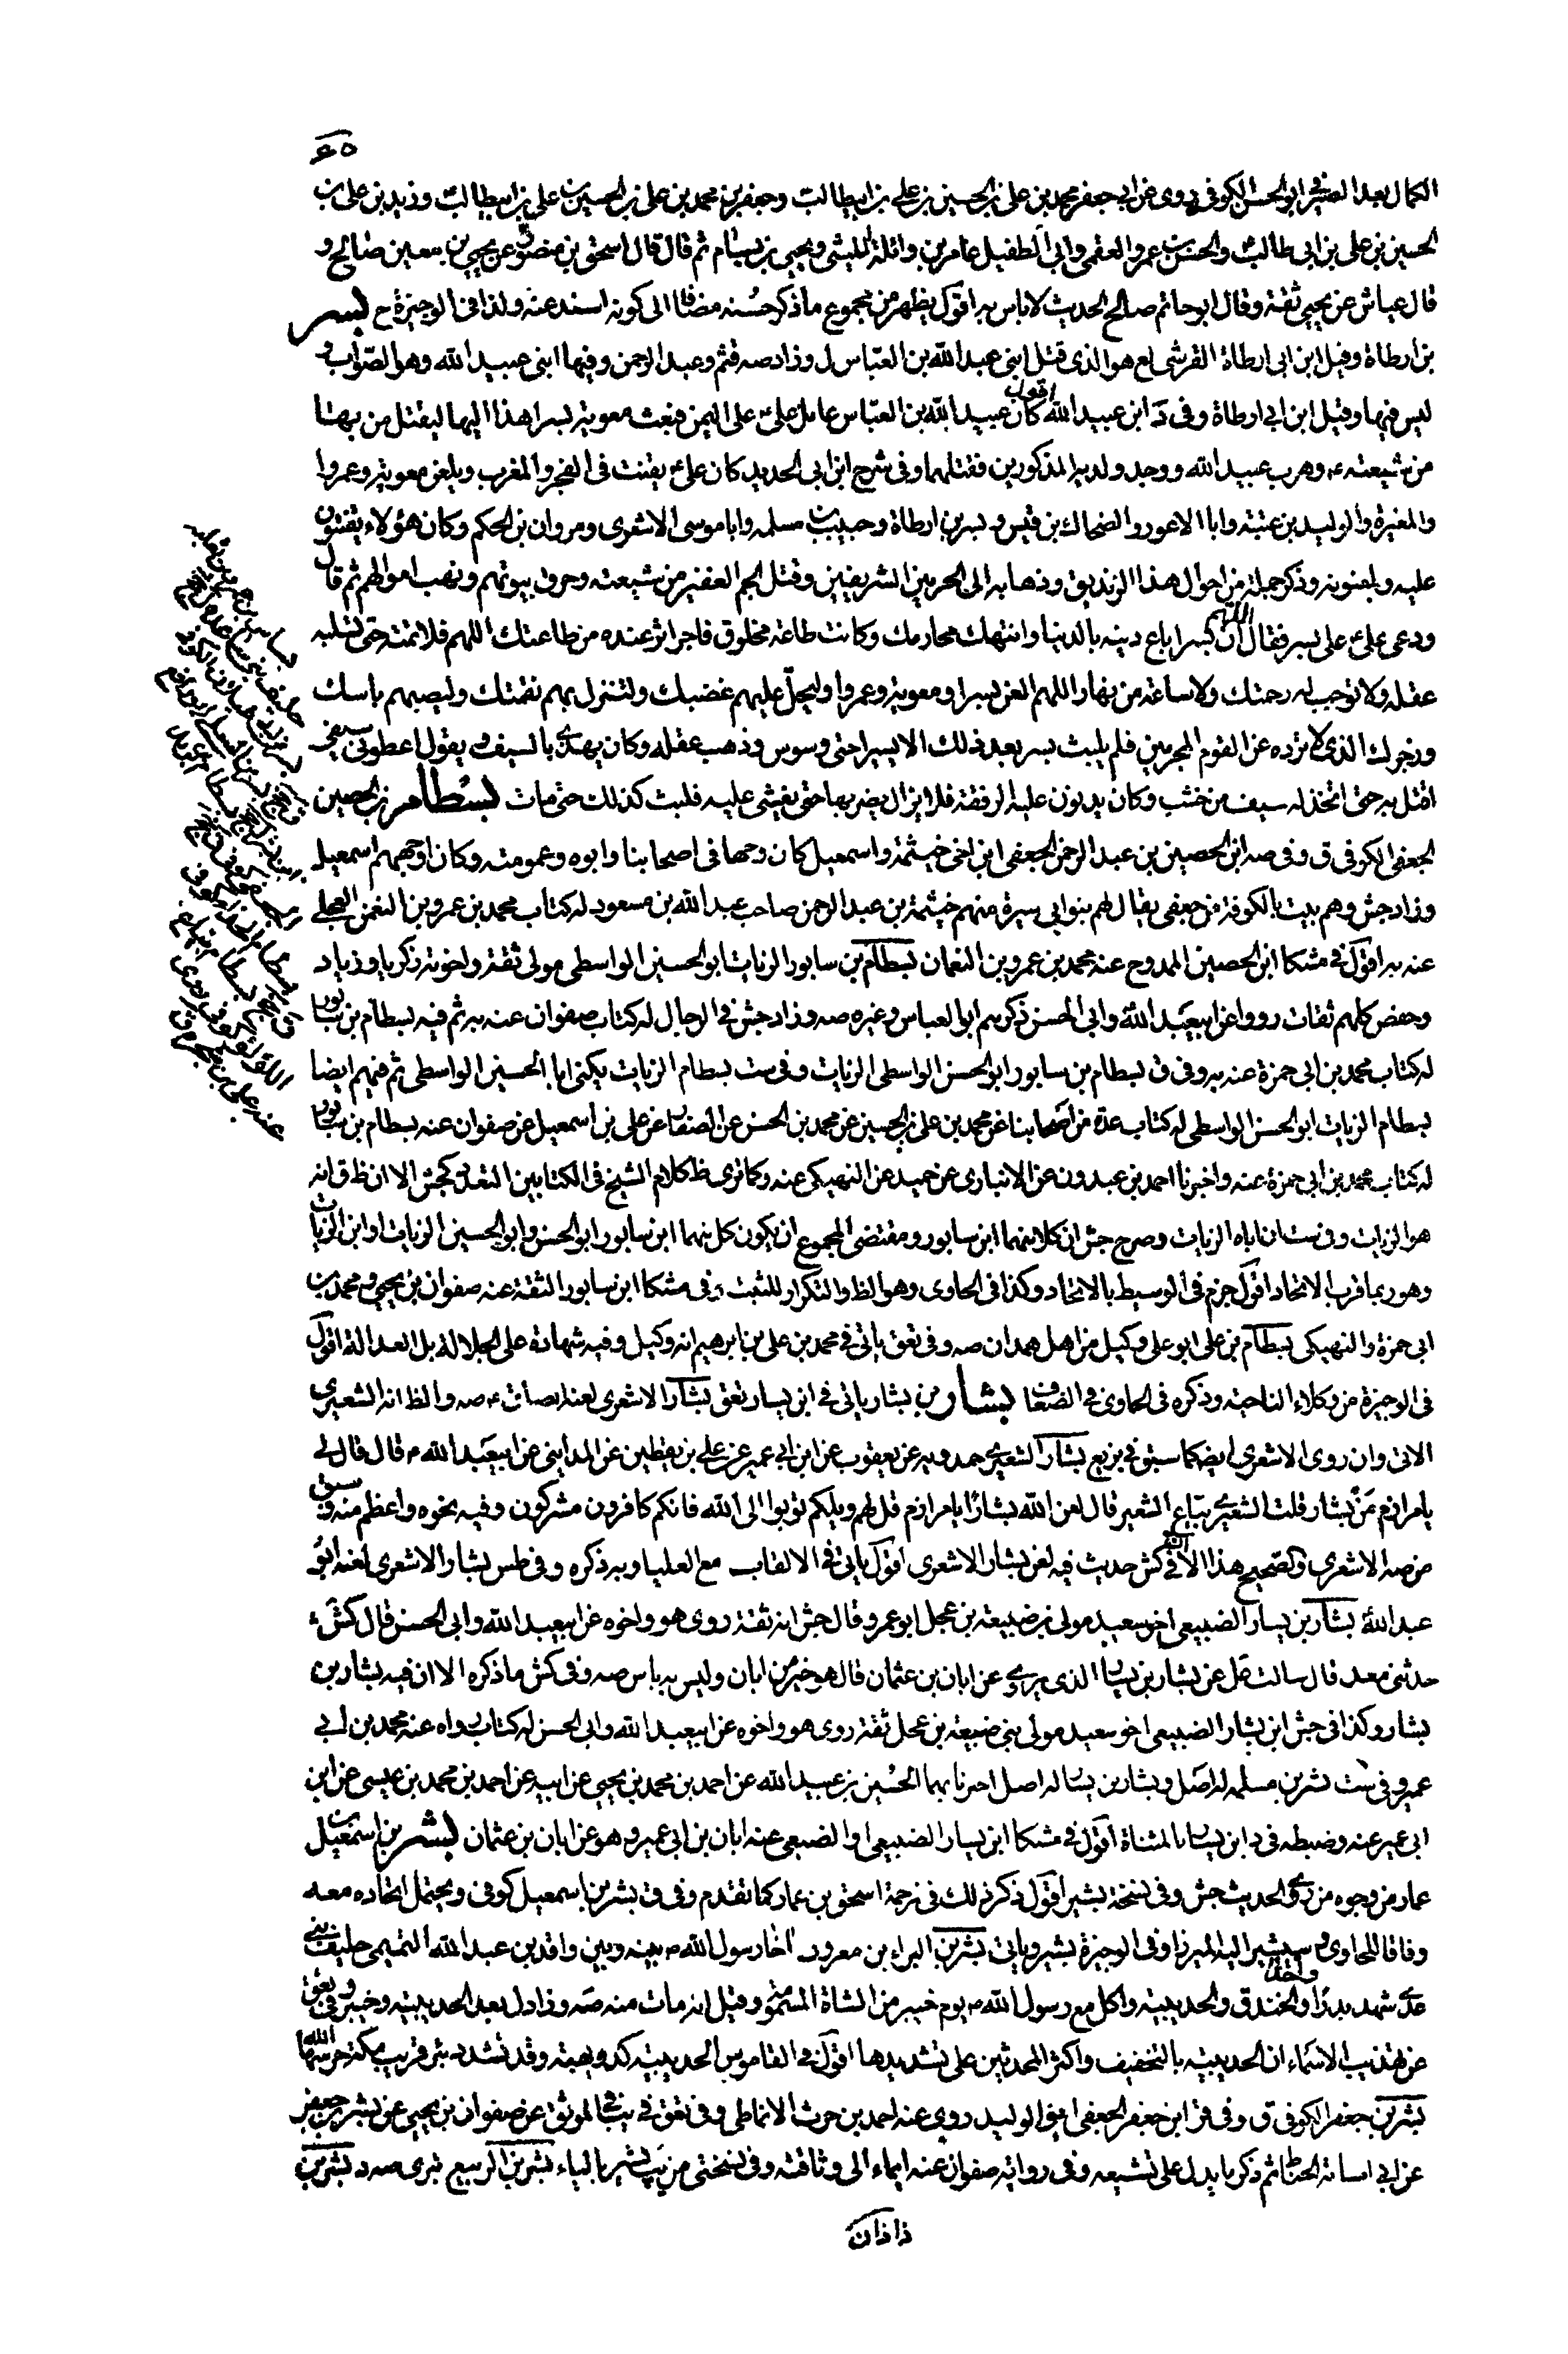 ٦٥
الكمال بعد الصيرفي ابو الحسن الكوفي روى عن ابي جعفر محمد بن علي بن الحسين بن علي بن ابيطالب وجعفر بن محمد بن علي بن الحسين بن علي بن ابيطالب وزيد بن علي بن
الحسين بن علي بن ابي طالب والحسن بن عمرو الفقمي وابي الطفيل عامر بن واثلة الليثي ويحيى بن بسام ثم قال قال اسحق بن منصور عن يحيى بن معين صالح و
قال عباس عن يحيى ثقة وقال ابو حاتم صالح الحديث لا باس به اقول يظهر من مجموع ما ذكر حسنه مضافا الى كونه اسند عنه ولذا في الوجيزة ح بسر
بن ارطاة وقيل ابن ابي ارطاة القرشي لع هو الذي قتل ابني عبد الله بن العباس ل وزاد صه قثم وعبد الرحمن وفيها ابني عبيد الله وهو الصواب و
ليس فيها وقيل ابن ابي ارطاة وفي د ابن عبيد الله اقول كان عبيد الله بن العباس عامل علي ع على اليمن فبعث معوية بسرا هذا اليها ليقتل من بها
من شيعته ع وهرب عبيد الله ووجد ولديه المذكورين فقتلهما وفي شرح ابن ابي الحديد كان علي ع يقنت في الفجر والمغرب ويلعن معوية وعمروا
والمغيرة والوليد بن عتبة وابا الاعور والضحاك بن قيس وبسر بن ارطاة وحبيب بن مسلمه وابا موسى الاشعري ومروان بن الحكم وكان هؤلاء يقنتون
عليه ويلعنونه وذكر جملة من احوال هذا الزنديق وذهابه الى الحرمين الشريفين وقتل الجم الغفير من شيعته وحرق بيوتهم ونهب اموالهم ثم قال
ودعى علي ع على بسر فقال اللهم ان بسرا باع دينه بالدنيا وانتهك محارمك وكانت طاعة مخلوق فاجر اثر عنده من طاعتك اللهم فلا تمته حتى تسلبه
عقله ولا توجب له رحمتك ولا ساعة من نهار اللهم العن بسرا ومعوية وعمروا وليحل عليهم غضبك ولتنزل بهم نقمتك وليصبهم باسك
وزجرك الذي لا ترده عن القوم المجرمين فلم يلبث بسر بعد ذلك الا يسيرا حتى وسوس وذهب عقله وكان يهذي بالسيف ويقول اعطوني سيفي
اقتل به حتى اتخذ له سيف من خشب وكان يدنون عليه الرفقة فلا يزال يضربها حتى يغشى عليه فلبث كذلك حتى مات بسطام بن الحصين
الجعفي الكوفي ق وفي صه ابن الحصين بن عبد الرحمن الجعفي ابن اخي خيثمة واسمعيل كان وجها في اصحابنا وابوه وعمومته وكان اوجههم اسمعيل
وزاد جش وهم بيت بالكوفة من جعفي يقال لهم بنو ابي سبرة منهم خيثمة بن عبد الرحمن صاحب عبد الله بن مسعود له كتاب محمد بن عمرو بن النعمن الجعلي
عنه به اقول في مشكا ابن الحصين الممدوح عنه محمد بن عمرو بن النعمان بسطام بن سابور الزيات ابو الحسين الواسطي مولى ثقة واخوته زكريا وزياد
وحفص كلهم ثقات رووا عن ابيعبد الله وابي الحسن ذكرهم ابو العباس وغيره صه وزاد جش في الرجال له كتاب صفوان عنه به ثم فيه بسطام بن سابور
له كتاب محمد بن ابي حمزة عنه به وفي ق بسطام بن سابور ابو الحسن الواسطي الزيات وفي ست بسطام الزيات يكنى ابا الحسين الواسطي ثم فيهم ايضا
بسطام الزيات ابو الحسن الواسطي له كتاب عدة من اصحابنا عن محمد بن علي بن الحسين عن محمد بن الحسن عن الصفار عن علي بن اسمعيل عن صفوان عنه بسطام بن سابور
له كتاب محمد بن ابي حمزة عنه واخبرنا احمد بن عبدون عن الانباري عن حميد عن النهيكي عنه وكما ترى ظ كلام الشيخ في الكتابين التعدد كجش الا ان ظ ق انه
هو الزيات وفي ست ان اباه الزيات وصرح جش ان كلا منهما ابن سابور ومقتضى المجموع ان يكون كل منهما ابن سابور ابو الحسن وابو الحسين الزيات او ابن الزيات
وهو ربما قرب الاتحاد اقول جزم في الوسيط بالاتحاد وكذا في الحاوى وهو الظ والتكرار للتثبت وفي مشكا ابن سابور الثقة عنه صفوان بن يحيى ومحمد بن
ابي حمزة والنهيكي بسطام بن علي ابو علي وكيل من اهل همدان صه وفي تعق ياتي في محمد بن علي بن ابرهيم انه وكيل وفيه شهادة على الجلالة بل العدالة اقول
في الوجيزة من وكلاء الناحية وذكره في الحاوى في الضعفا بشار بن بشار ياتي في ابن يسار تعق بشار الاشعري لعنه الصادق ع صه والظ انه الشعيري
الاتي وان روى الاشعري ايضا كما سبق في بزيع بشار الشعيري حمدويه عن يعقوب عن ابن ابي عمير عن علي بن يقطين عن المدايني عن ابيعبد الله ع قال قال لي
يا مرازم من بشار قلت الشعيري بياع الشعير قال لعن الله بشارا يا مرازم قل لهم ويلكم توبوا الى الله فانكم كافرون مشركون وفيه نحوه واعظم منه وسبق
من صه الاشعري والصحيح هذا الا في كش حديث فيه لعن بشار الاشعري اقول ياتي في الالقاب مع العليا وبه ذكره وفي طس بشار الاشعري لعنه ابو
عبد الله بشار بن يسار الضبيعي اخو سعيد مولى بن ضبيعة بن عجل ابو عمرو قال جش انه ثقة روى هو واخوه عن ابيعبد الله وابي الحسن قال كش
حدثني محمد قال سالت عل عن بشار بن يسار الذي يروي عن ابان بن عثمان قال هو خير من ابان وليس به باس صه وفي كش ما ذكره الا ان فيه بشار بن
بشار وكذا في جش ابن يسار الضبيعي اخو سعيد مولى بني ضبيعة بن عجل ثقة روى هو واخوه عن ابيعبد الله وابي الحسن له كتاب رواه عنه محمد بن ابي
عمير وفي ست بشر بن مسلمه له اصل وبشار بن يسار له اصل اخبرنا بهما الحسين بن عبيد الله عن احمد بن محمد بن يحيى عن ابيه عن احمد بن محمد بن عيسى عن ابن
ابي عمير عنه وضبطه في د ابن يسار بالمثناة اقول في مشكا ابن يسار الضبيعي او الضبعي عنه ابان بن ابي عمير وهو عن ابان بن عثمان بشر بن اسمعيل بن
عمار من وجوه من روى الحديث جش وفي نسخة بشير اقول ذكر ذلك في ترجمة اسحق بن عمار كما تقدم وفي ق بشر بن اسمعيل كوفي ويحتمل اتحاده معه
وفاقا للحاوى وسيشير اليه الميرزا وفي الوجيزة بشير وياتي بشر بن البراء بن معرور اخا رسول الله ص بينه وبين واقد بن عبد الله التميمي حليف بني
عدي شهد بدرا واحدا والخندق والحديبية واكل مع رسول الله ص يوم خيبر من الشاة المسمومة وقيل انه مات منه صه وزاد ل بعد الحديبية وخيبر وفي تعق
عن تهذيب الاسماء ان الحديبية بالتخفيف واكثر المحدثين على تشديدها اقول في القاموس الحديبية كدويهية وقد تشدد بئر قريب مكة حرسها الله
بشر بن جعفر الكوفي ق وفي قر ابن جعفر الجعفي ابو الوليد روى عنه احمد بن حرث الانماطي وفي تعق في يب في الموثق عن صفوان بن يحيى عن بشر بن جعفر
عن ابي اسامة الحناط ثم ذكر ما يدل على تشيعه وفي رواية صفوان عنه ايماء الى وثاقته وفي نسختي من يب بشير بالياء بشر بن الربيع بتري صه د بشر بن
ذاذان